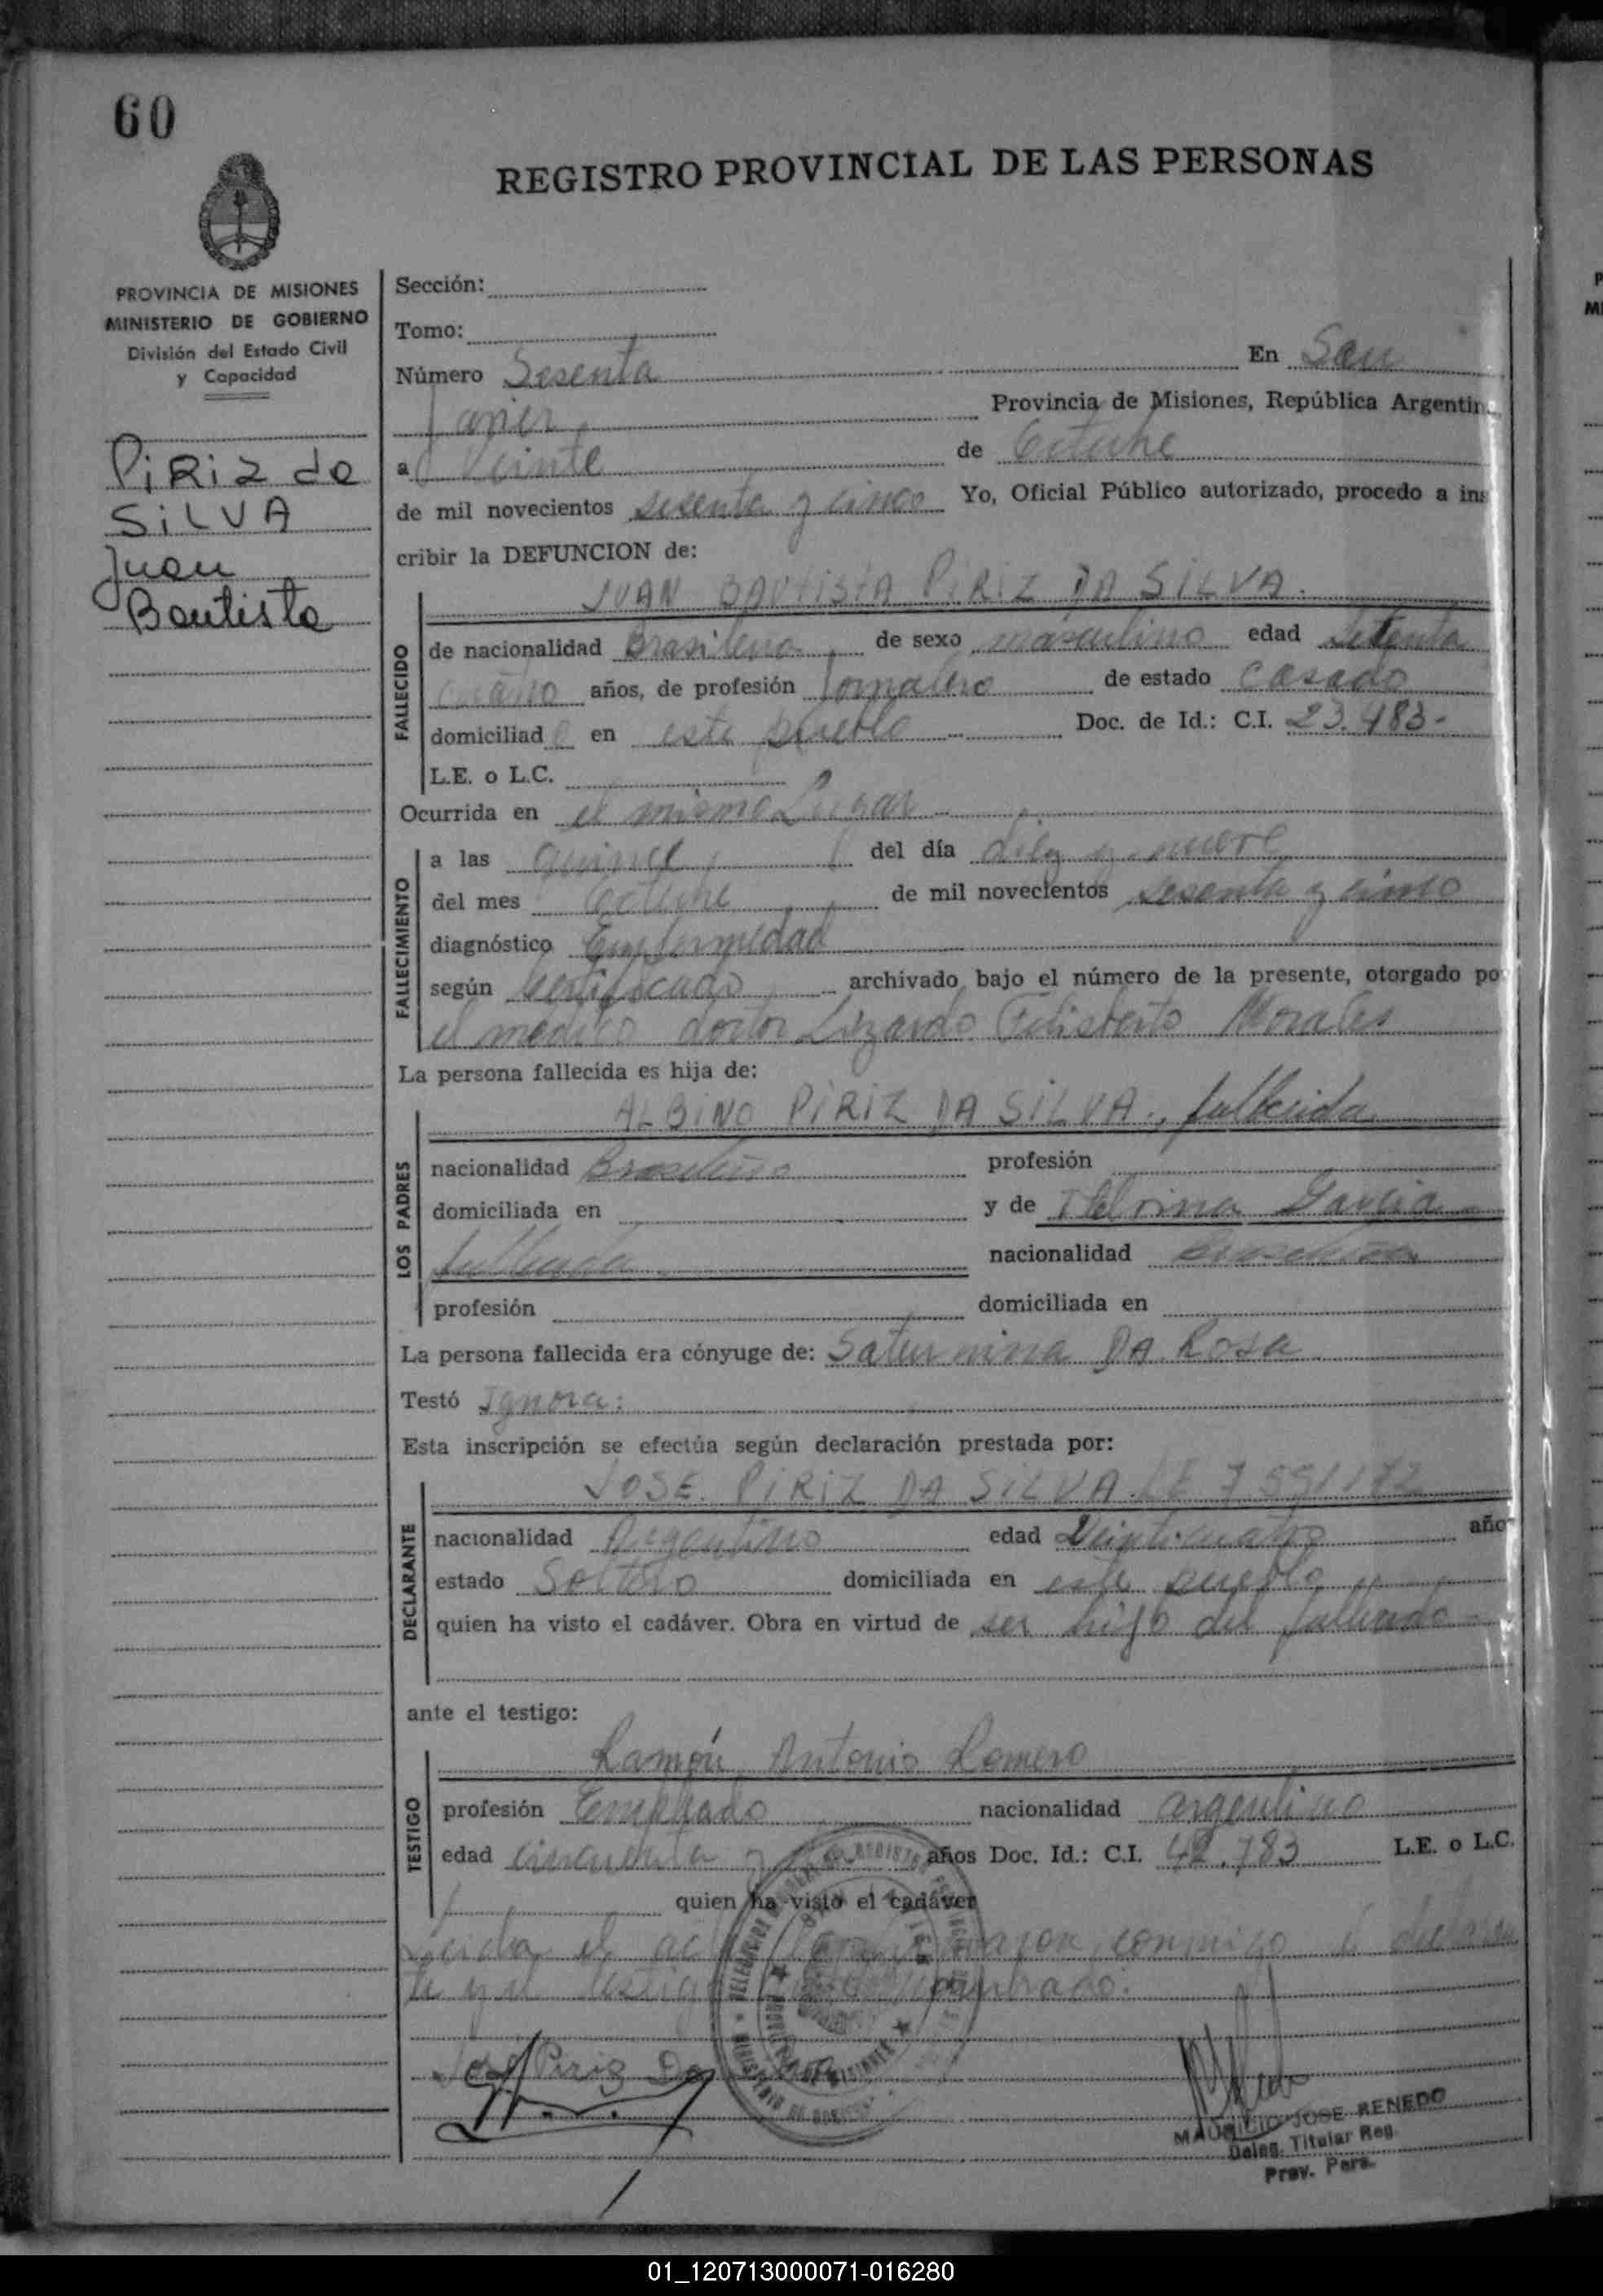 60
REGISTRO PROVINCIAL DE LAS PERSONAS
PROVINCIA DE MISIONES
MINISTERIO DE GOBIERNO
División del Estado Civil
y Capacidad
PiRiz de
SiLVA
Juan
Bautista
Sección:
Tomo:
Número Sesenta En San
Javier Provincia de Misiones, República Argentin
a Veinte de Octubre
de mil novecientos sesenta y cinco Yo, Oficial Público autorizado, procedo a ins
cribir la DEFUNCION de:
JUAN BAUTISTA PIRIZ DA SILVA.
FALLECIDO
de nacionalidad Brasilena de sexo masculino edad setenta
cuatro años, de profesión Jornalero de estado casado
domiciliado en este pueblo Doc. de Id.: C.I. 23.483-
L.E. o L.C.
Ocurrida en el mismo Lugar
FALLECIMIENTO
a las quince del día diez y nueve
del mes Octubre de mil novecientos sesenta y cinco
diagnóstico Enfermedad
según Certificado archivado bajo el número de la presente, otorgado po
el medico doctor Lizardo Filisberto Morales
La persona fallecida es hija de:
LOS PADRES
ALBINO PIRIZ DA SILVA., fallecida
nacionalidad Brasileño profesión
domiciliada en y de Garcia
fallecida nacionalidad Brasileña
profesión domiciliada en
La persona fallecida era cónyuge de: Saturnina DA Rosa
Testó Ignora:
Esta inscripción se efectúa según declaración prestada por:
DECLARANTE
JOSE PIRIZ DA SILVA LE 7.591172
nacionalidad Argentino edad Veinticuatro año
estado Soltero domiciliada en este pueblo
quien ha visto el cadáver. Obra en virtud de ser hijo del fallecido
ante el testigo:
TESTIGO
Ramón Antonio Romero
profesión Empleado nacionalidad argentino
edad cincuenta y años Doc. Id.: C.I. 42.783 L.E. o L.C.
quien ha visto el cadáver
Leida el acta conmigo el declaran
te y el testigo
José Piriz Da
MAURICIO JOSE RENEDO
Deleg. Titular Reg.
Prov. Pers.
01_120713000071-016280